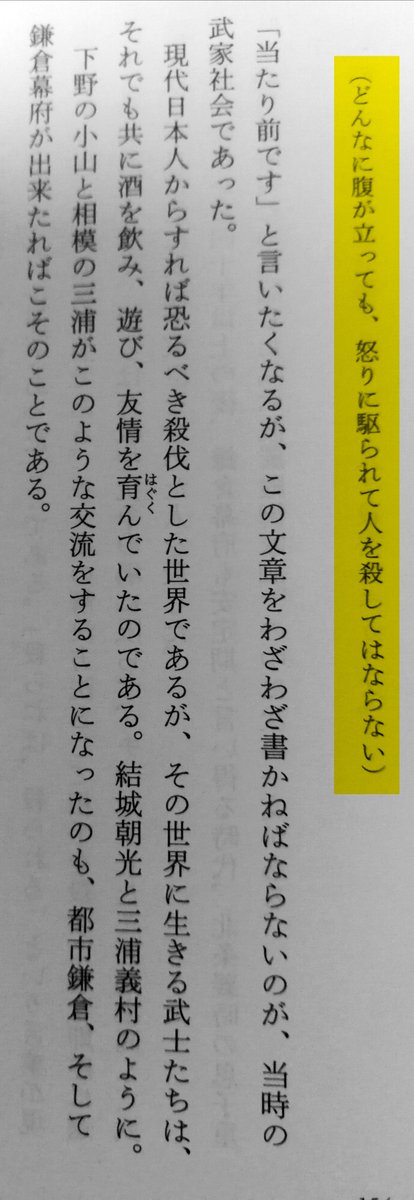 （どんなに腹が立っても、怒りに駆られて人を殺してはならない）
「当たり前です」と言いたくなるが、この文章をわざわざ書かねばならないのが、当時の
武家社会であった。
現代日本人からすれば恐るべき殺伐とした世界であるが、その世界に生きる武士たちは、
それでも共に酒を飲み、遊び、友情を育んでいたのである。結城朝光と三浦義村のように。
はぐく
下野の小山と相模の三浦がこのような交流をすることになったのも、都市鎌倉、そして
鎌倉幕府が出来たればこそのことである。